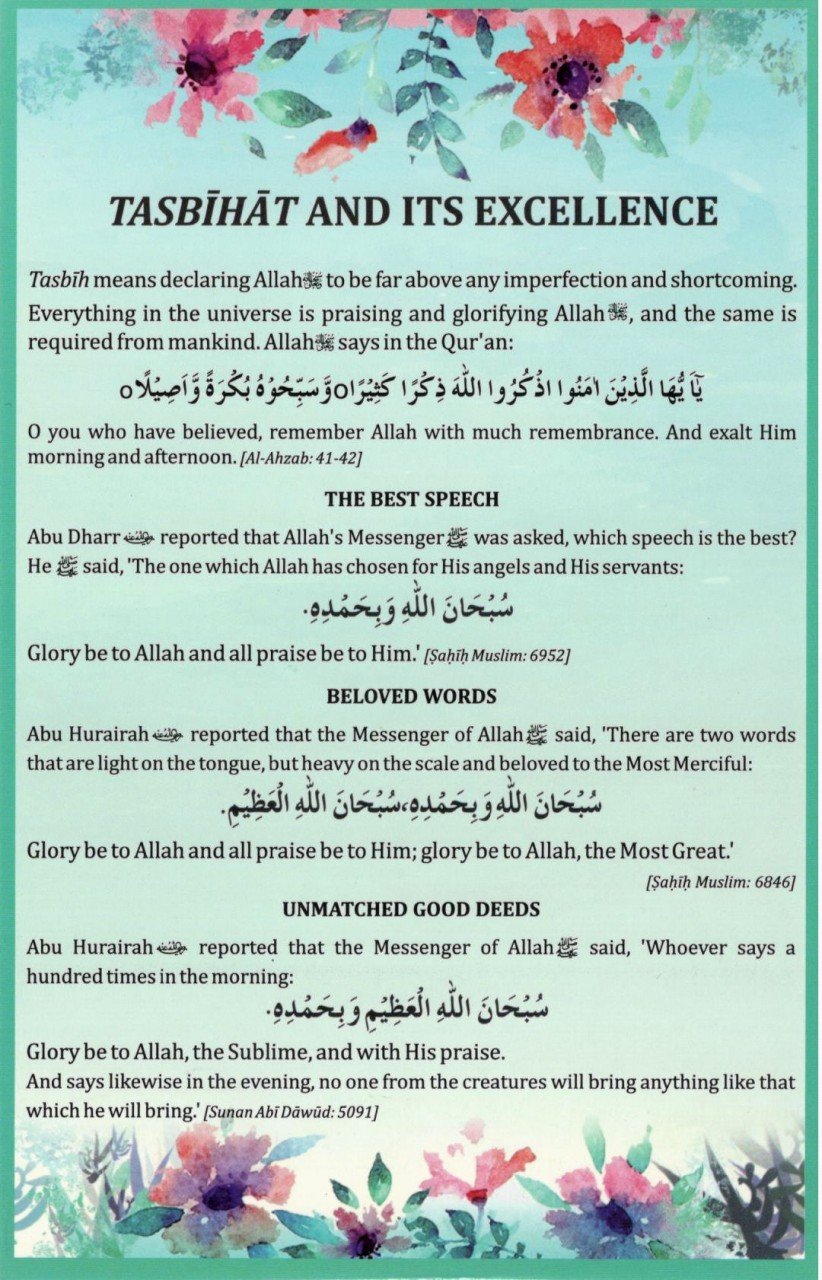 TASBĪHĀT AND ITS EXCELLENCE
Tasbīh means declaring Allahﷻ to be far above any imperfection and shortcoming.
Everything in the universe is praising and glorifying Allahﷻ, and the same is
required from mankind. Allahﷻ says in the Qur'an:
يٰٓاَ يُّهَا الَّذِيْنَ اٰمَنُوا اذْكُرُوا اللّٰهَ ذِكْرًا كَثِيْرًاoوَّسَبِّحُوْهُ بُكْرَةً وَّاَصِيْلًاo
O you who have believed, remember Allah with much remembrance. And exalt Him
morning and afternoon. [Al-Ahzab: 41-42]
THE BEST SPEECH
Abu Dharr رضي الله عنه reported that Allah's Messenger ﷺ was asked, which speech is the best?
He ﷺ said, 'The one which Allah has chosen for His angels and His servants:
سُبْحَانَ اللّٰهِ وَبِحَمْدِهِ.
Glory be to Allah and all praise be to Him.' [Ṣaḥīḥ Muslim: 6952]
BELOVED WORDS
Abu Hurairah رضي الله عنه reported that the Messenger of Allah ﷺ said, 'There are two words
that are light on the tongue, but heavy on the scale and beloved to the Most Merciful:
سُبْحَانَ اللّٰهِ وَبِحَمْدِهِ،سُبْحَانَ اللّٰهِ الْعَظِيْمِ.
Glory be to Allah and all praise be to Him; glory be to Allah, the Most Great.'
[Ṣaḥīḥ Muslim: 6846]
UNMATCHED GOOD DEEDS
Abu Hurairah رضي الله عنه reported that the Messenger of Allah ﷺ said, 'Whoever says a
hundred times in the morning:
سُبْحَانَ اللّٰهِ الْعَظِيْمِ وَبِحَمْدِهِ.
Glory be to Allah, the Sublime, and with His praise.
And says likewise in the evening, no one from the creatures will bring anything like that
which he will bring.' [Sunan Abī Dāwūd: 5091]